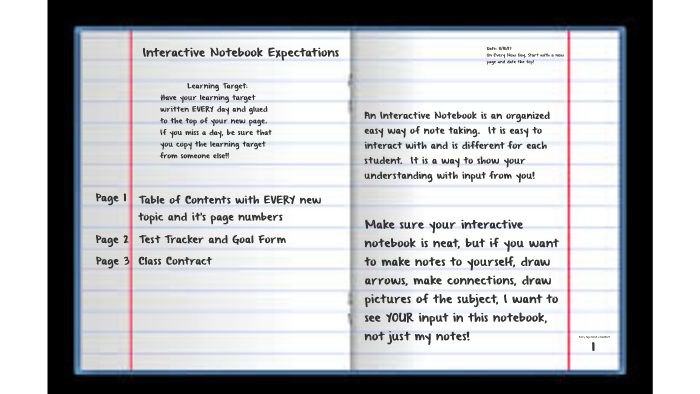 Interactive Notebook Expectations
Learning Target:
Have your learning target
written EVERY day and glued
to the top of your new page.
If you miss a day, be sure that
you copy the learning target
from someone else!!
Page 1 Table of Contents with EVERY new
topic and it's page numbers
Page 2 Test Tracker and Goal Form
Page 3 Class Contract
On Every New Day, Start with a new
page and date the top!
An Interactive Notebook is an organized
easy way of note taking. It is easy to
interact with and is different for each
student. It is a way to show your
understanding with input from you!
Make sure your interactive
notebook is neat, but if you want
to make notes to yourself, draw
arrows, make connections, draw
pictures of the subject, I want to
see YOUR input in this notebook,
not just my notes!
1